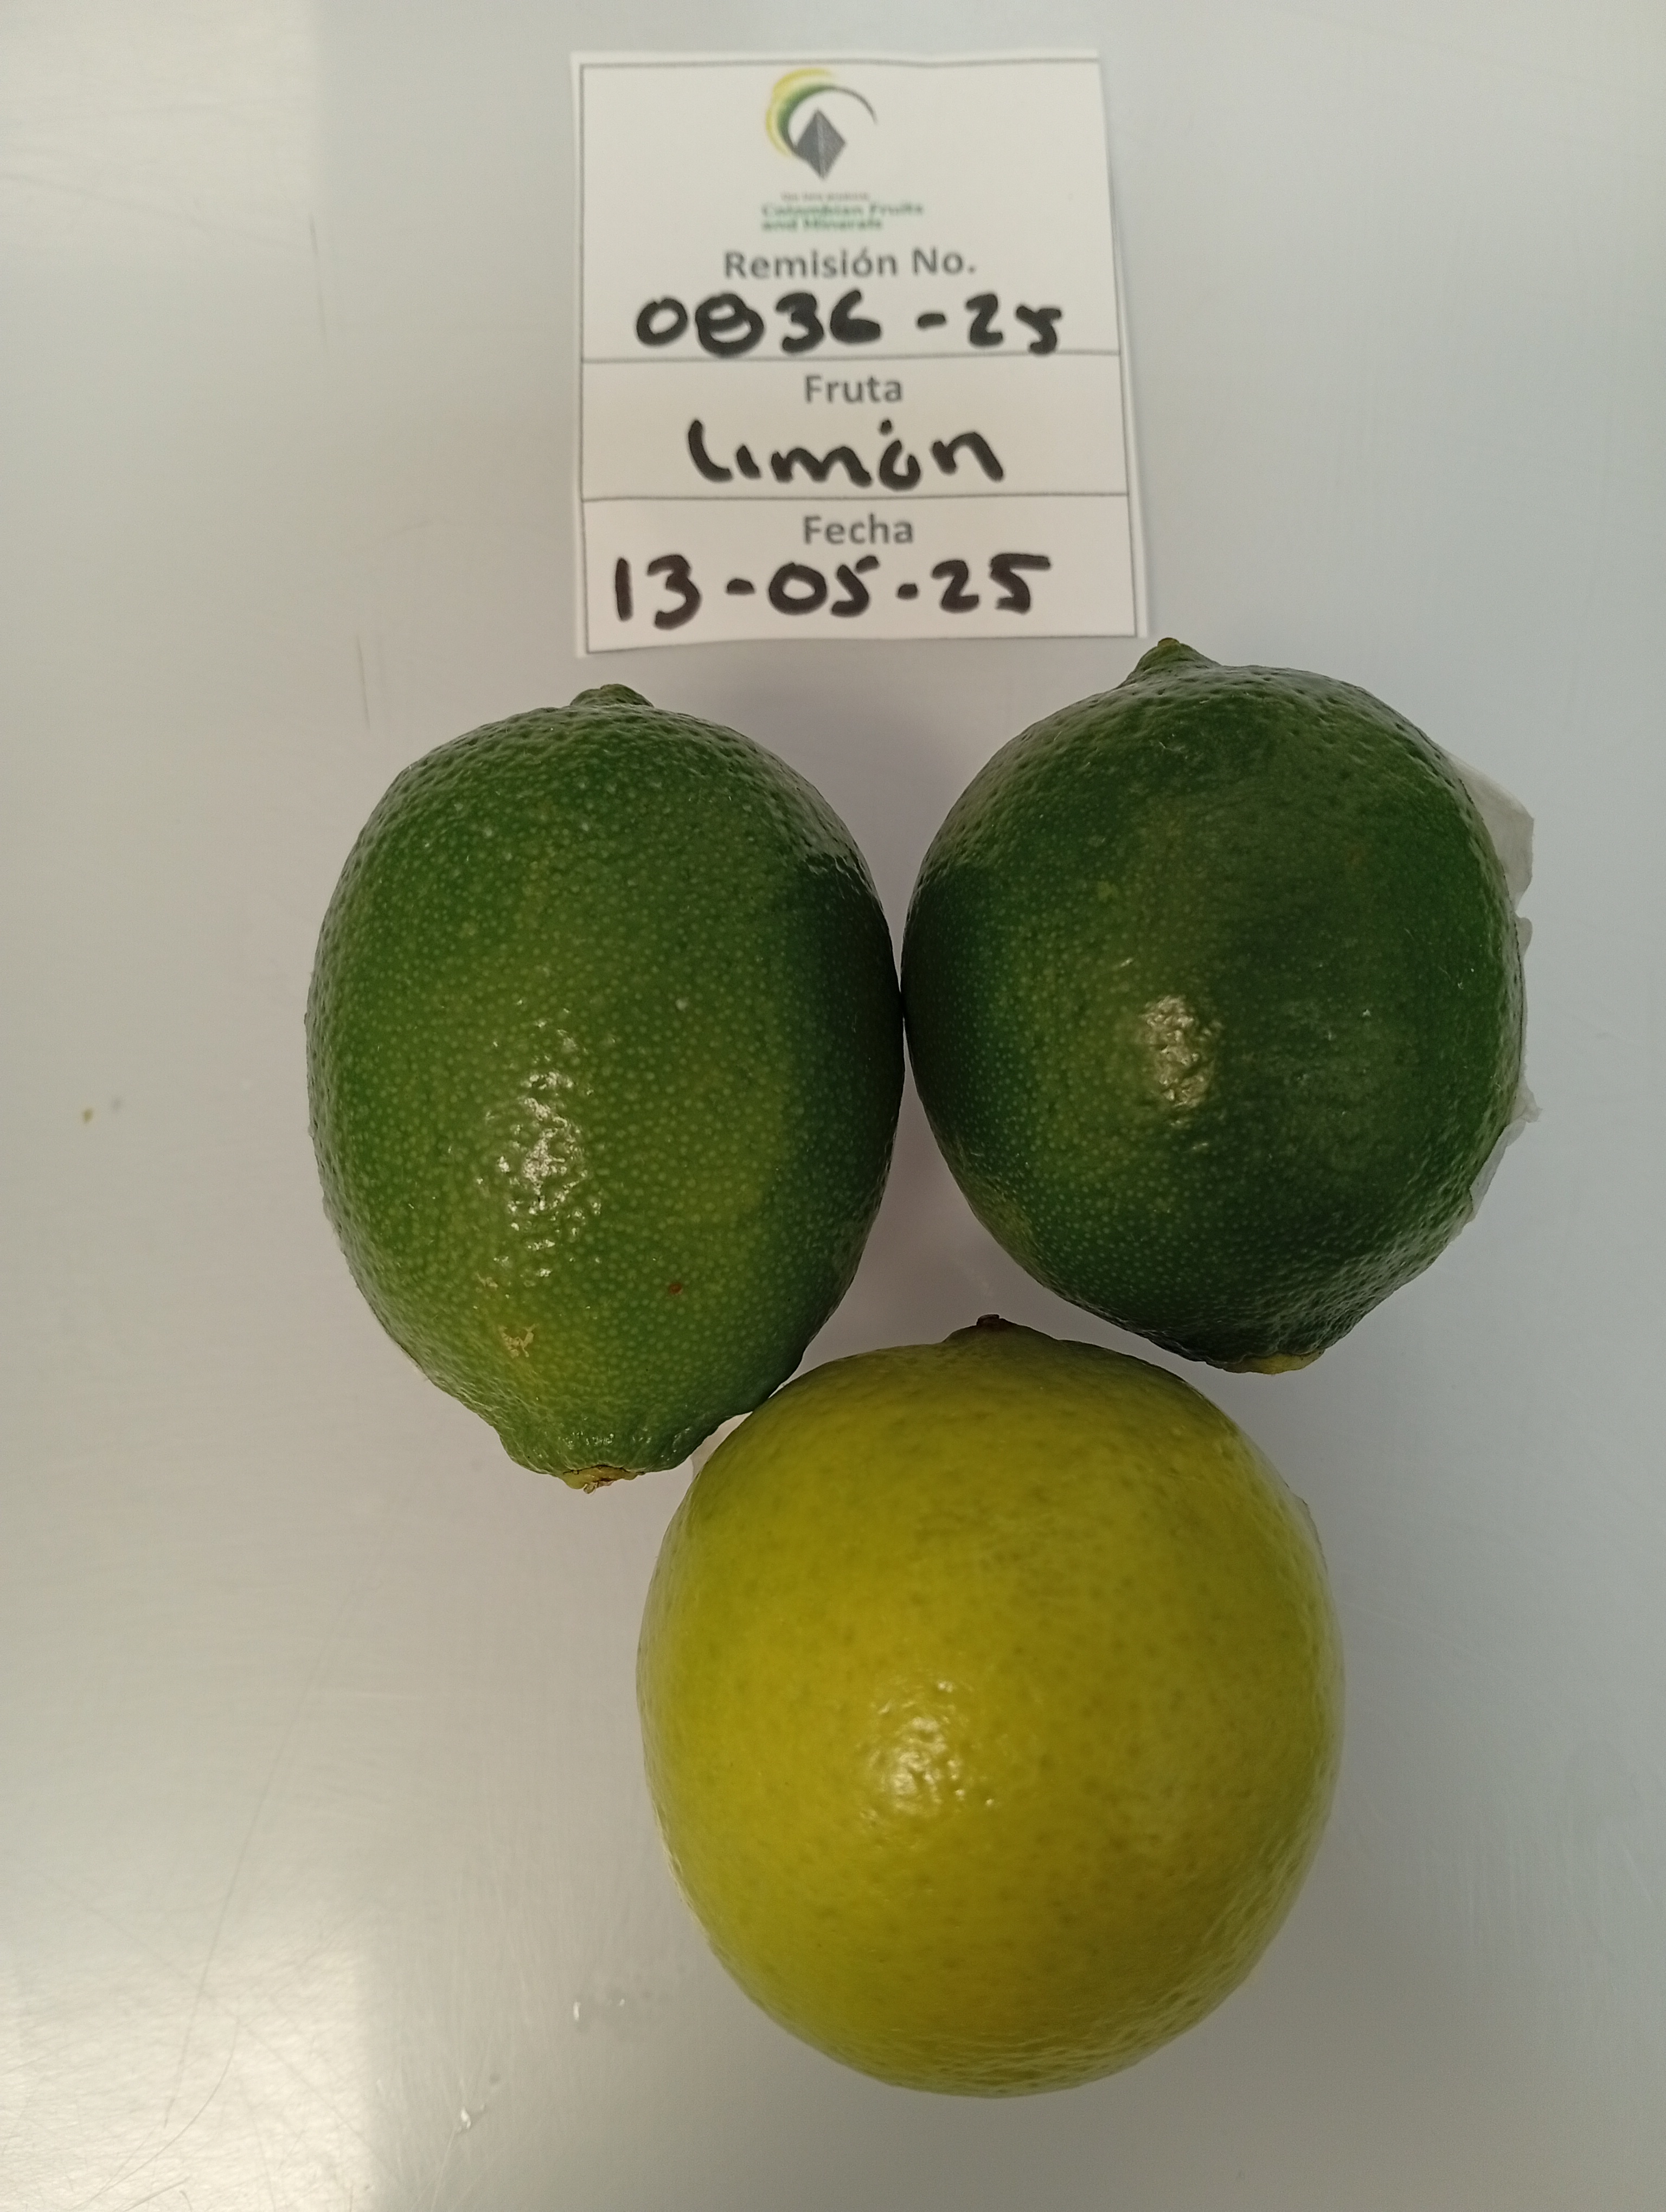 Colombian Fruits
and Minerals
Remisión No.
0836-25
Fruta
Limón
Fecha
13-05-25